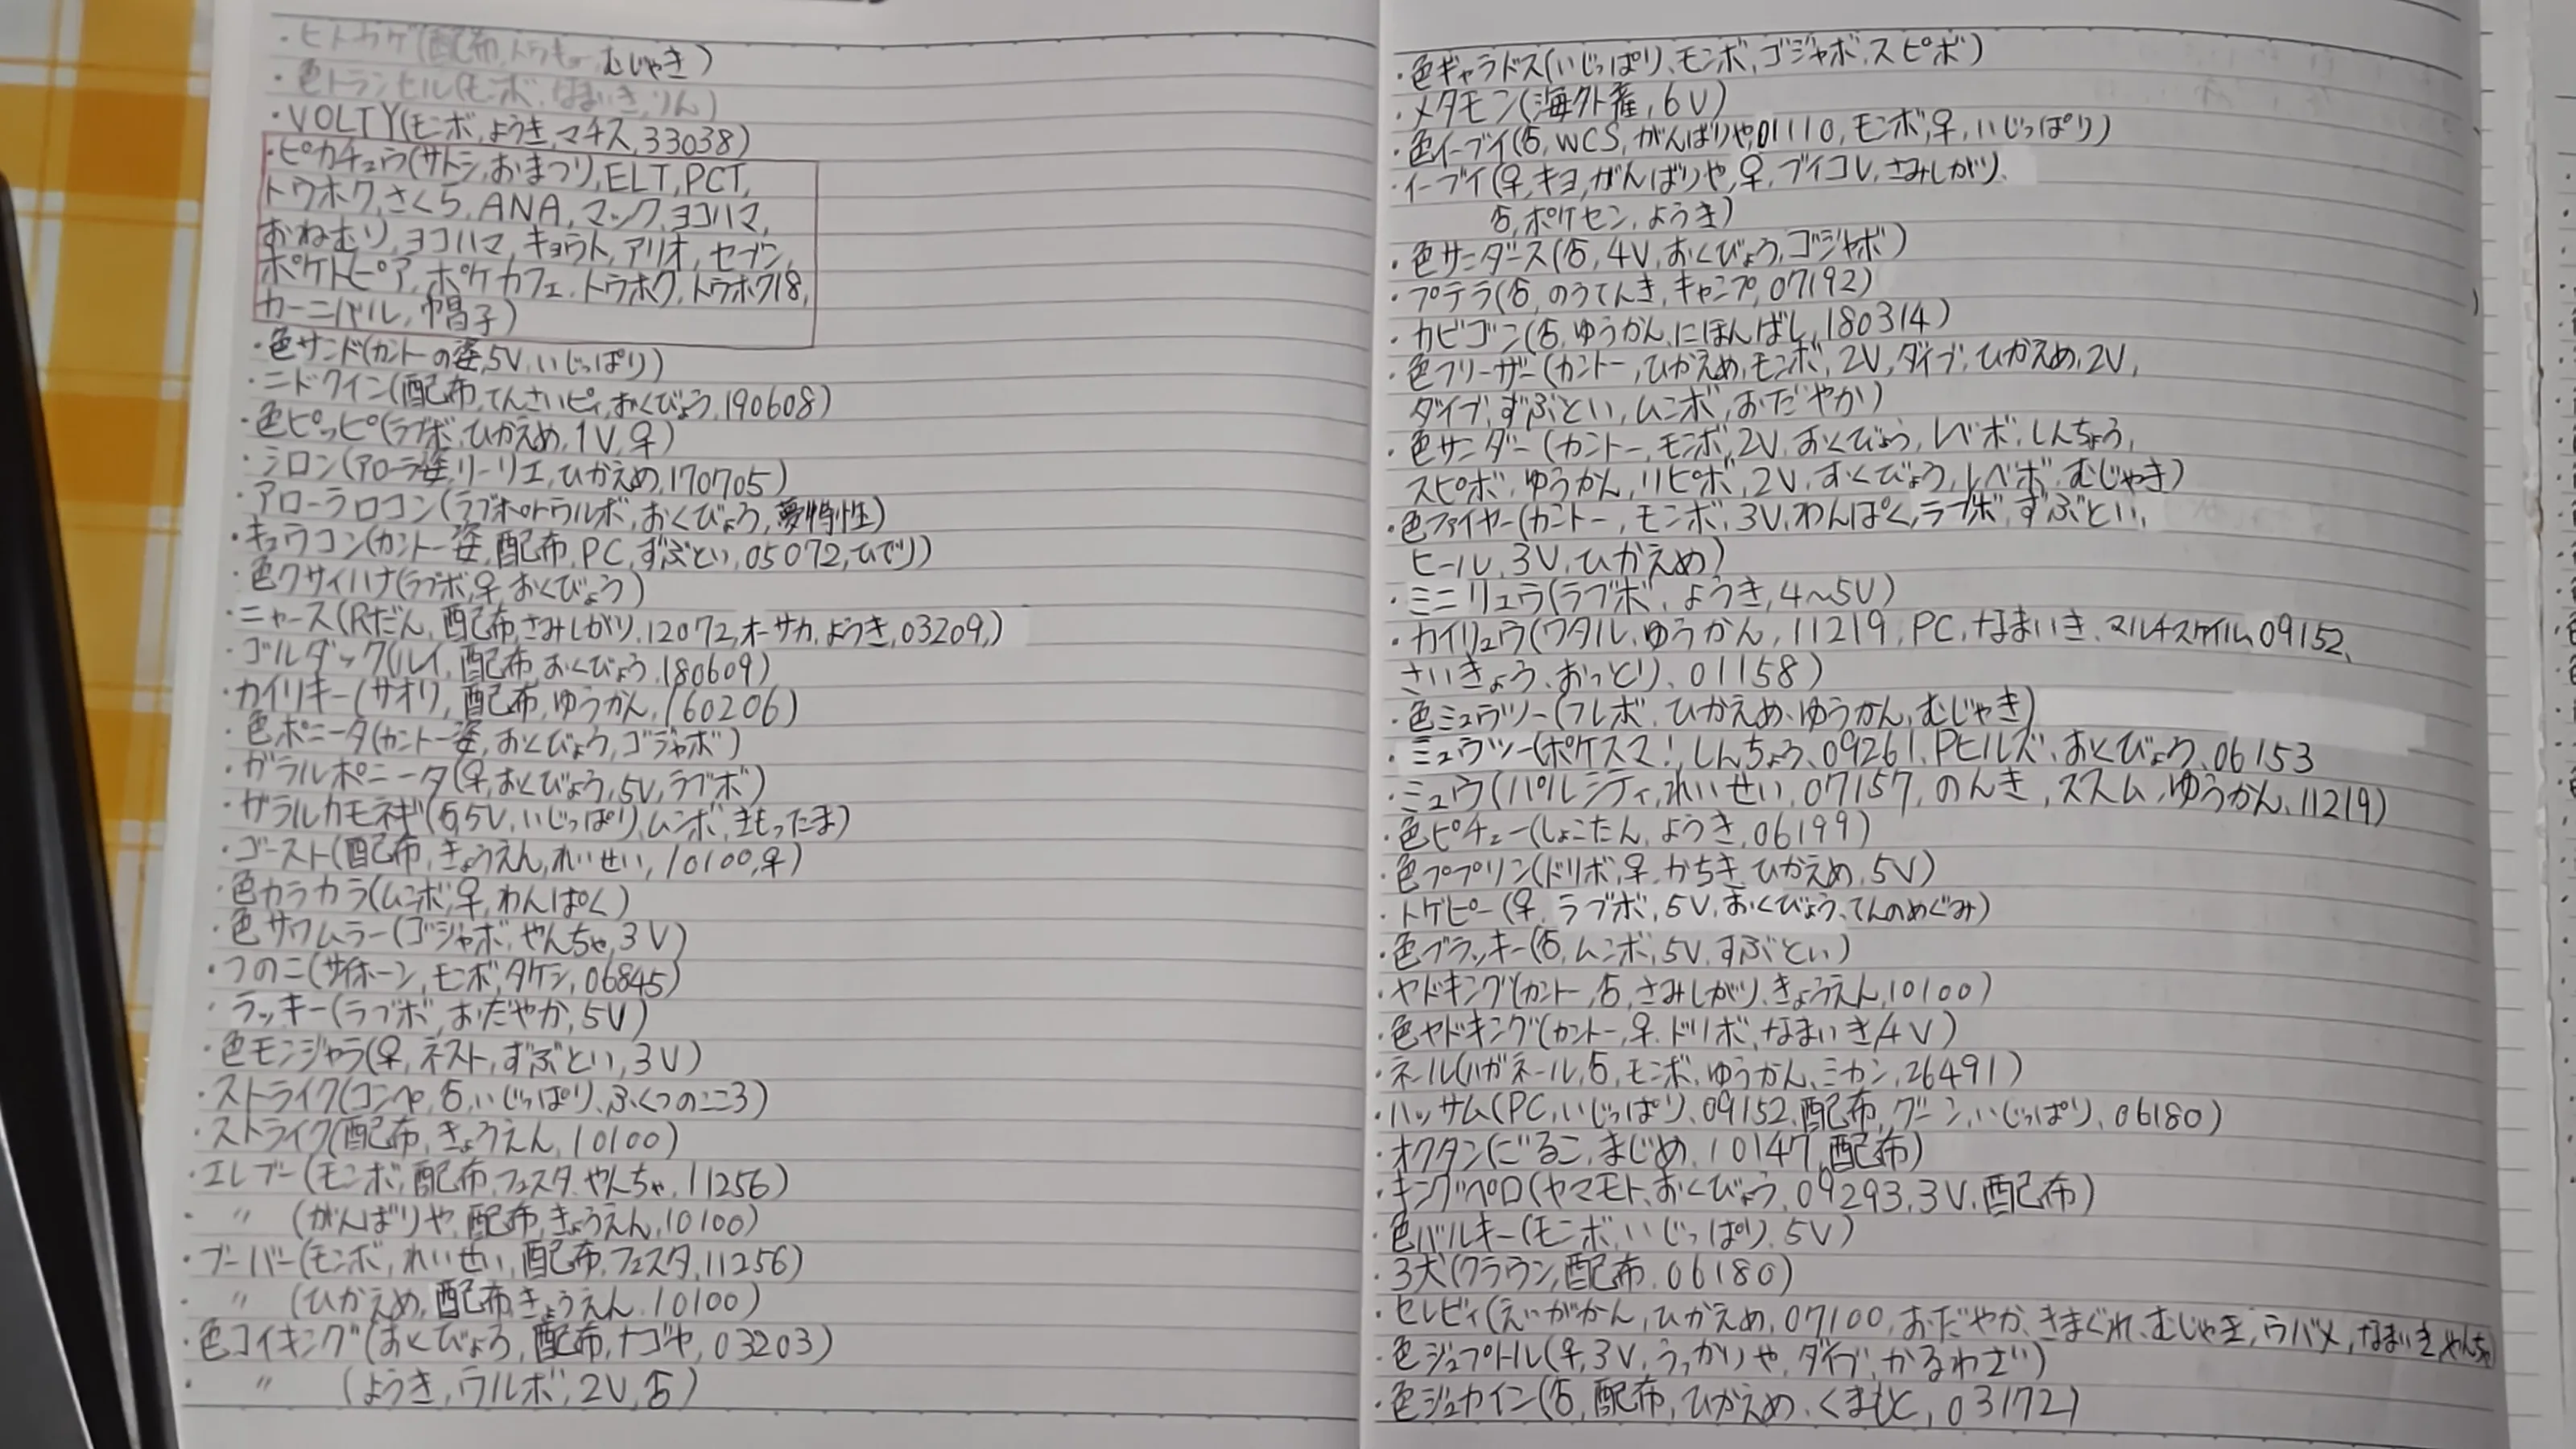 ・ヒトカゲ(配布,トウキョー,むじゃき)
・色トランセル(モンボ,なまいき,りん)
・VOLTY(モンボ,ようき,マチス,33038)
・ピカチュウ(サトシ,おまつり,ELT,PCT,
トウホク,さくら,ANA,マック,ヨコハマ,
おねむり,ヨコハマ,キョウト,アリオ,セブン,
ポケトピア,ポケカフェ,トウホク,トウホク18,
カーニバル,帽子)
・色サンド(カントーの姿,5V,いじっぱり)
・ニドクイン(配布,てんさいピィ,おくびょう,190608)
・色ピッピ(ラブボ,ひかえめ,1V,♀)
・シロン(アローラ姿,リーリエ,ひかえめ,170705)
・アローラロコン(ラブボorウルボ,おくびょう,夢特性)
・キュウコン(カントー姿,配布,PC,ずぶとい,05072,ひでり)
・色クサイハナ(ラブボ,♀,おくびょう)
・ニャース(Rだん,配布,さみしがり,12072,オーサカ,ようき,03209,)
・ゴルダック(ルイ,配布,おくびょう,180609)
・カイリキー(サオリ,配布,ゆうかん,160206)
・色ポニータ(カントー姿,おくびょう,ゴジャボ)
・ガラルポニータ(♀,おくびょう,5V,ラブボ)
・ガラルカモネギ(♂,5V,いじっぱり,ムンボ,きもったま)
・ゴースト(配布,きょうえん,れいせい,10100,♀)
・色カラカラ(ムンボ,♀,わんぱく)
・色サワムラー(ゴジャボ,やんちゃ,3V)
・つのニ(サイホーン,モンボ,タケシ,06845)
・ラッキー(ラブボ,おだやか,5V)
・色モンジャラ(♀,ネスト,ずぶとい,3V)
・ストライク(コンペ,♂,いじっぱり,ふくつのこころ)
・ストライク(配布,きょうえん,10100)
・エレブー(モンボ,配布,フェスタ,やんちゃ,11256)
・〃(がんばりや,配布,きょうえん,10100)
・ブーバー(モンボ,れいせい,配布,フェスタ,11256)
・〃(ひかえめ,配布,きょうえん,10100)
・色コイキング(おくびょう,配布,ナゴヤ,03203)
・〃(ようき,ウルボ,2V,♂)
・色ギャラドス(いじっぱり,モンボ,ゴジャボ,スピボ)
・メタモン(海外産,6V)
・色イーブイ(♂,WCS,がんばりや,01110,モンボ,♀,いじっぱり)
・イーブイ(♀,キヨ,がんばりや,♀,ブイコレ,さみしがり,
♂,ポケセン,ようき)
・色サンダース(♂,4V,おくびょう,ゴジャボ)
・プテラ(♂,のうてんき,キャンプ,07192)
・カビゴン(♂,ゆうかん,にほんばし,180314)
・色フリーザー(カントー,ひかえめ,モンボ,2V,ダイブ,ひかえめ,2V,
ダイブ,ずぶとい,ムンボ,おだやか)
・色サンダー(カントー,モンボ,2V,おくびょう,レベボ,しんちょう,
スピボ,ゆうかん,リピボ,2V,おくびょう,レベボ,むじゃき)
・色ファイヤー(カントー,モンボ,3V,わんぱく,ラブボ,ずぶとい,
ヒール,3V,ひかえめ)
・ミニリュウ(ラブボ,ようき,4〜5V)
・カイリュウ(ワタル,ゆうかん,11219,PC,なまいき,マルチスケイル,09152,
さいきょう,おっとり,01158)
・色ミュウツー(フレボ,ひかえめ,ゆうかん,むじゃき)
・ミュウツー(ポケスマ!,しんちょう,09261,Pヒルズ,おくびょう,06153
・ミュウ(パルシティ,れいせい,07157,のんき,ススム,ゆうかん,11219)
・色ピチュー(しょこたん,ようき,06199)
・色ププリン(ドリボ,♀,かちき,ひかえめ,5V)
・トゲピー(♀,ラブボ,5V,おくびょう,てんのめぐみ)
・色ブラッキー(♂,ムンボ,5V,ずぶとい)
・ヤドキング(カントー,♂,さみしがり,きょうえん,10100)
・色ヤドキング(カントー,♀,ドリボ,なまいき,4V)
・ネール(ハガネール,♂,モンボ,ゆうかん,ミカン,26491)
・ハッサム(PC,いじっぱり,09152,配布,グーン,いじっぱり,06180)
・オクタン(ごるご,まじめ,10147,配布)
・キングペロ(ヤマモト,おくびょう,09293,3V,配布)
・色バルキー(モンボ,いじっぱり,5V)
・3犬(クラウン,配布,06180)
・セレビィ(えいがかん,ひかえめ,07100,おだやか,きまぐれ,むじゃき,ウバメ,なまいき,やんちゃ)
・色ジュプトル(♀,3V,うっかりや,ダイブ,かるわざ)
・色ジュカイン(♂,配布,ひかえめ,くまもと,03172)